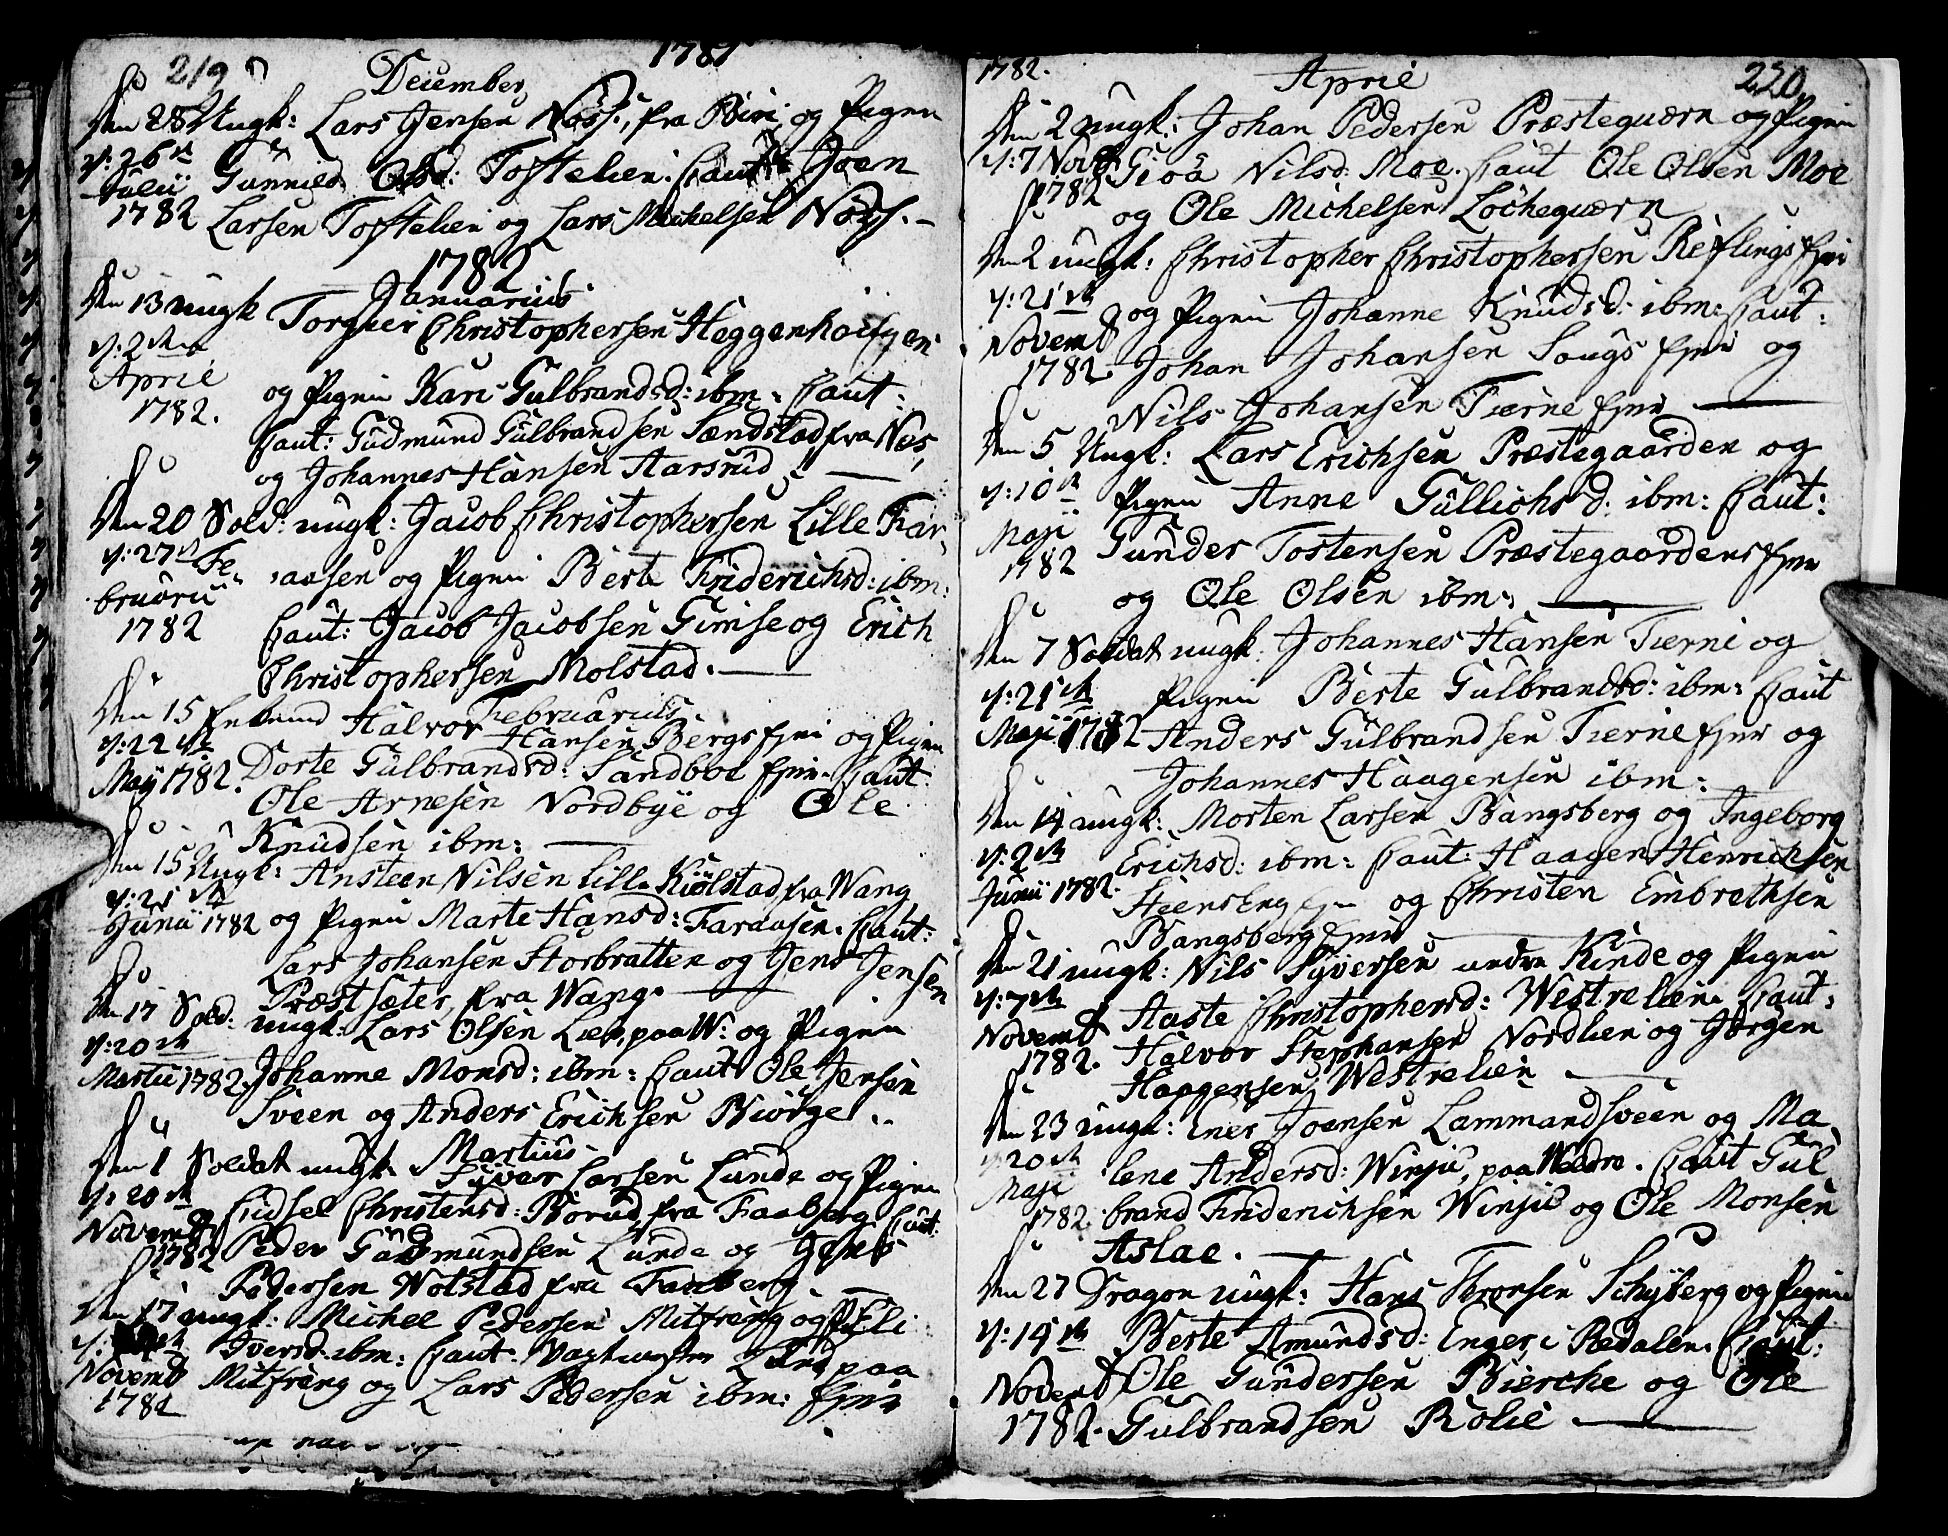 219
1781
December
Den 28 Ungk: Lars Jensen Nøss, fra Biri og Pigen
v: 26de Gunnild Olsd: Toftelien. Caut: Joen
Julii
1782 Larsen Toftelien og Lars Michelsen Nøss.
1782
Januarius
Den 13 ungk Torgier Christophersen Heggenhougen
v: 2den
April og Pigen Kari Gulbrandsd: ibm. Caut:
1782. Caut: Gudmund Gulbrandsen Sandstad fra Nes,
og Johannes Hansen Aarsrud
Den 20 Sold: ungk: Jacob Christophersen Lille Far-
v: 27de Fe- aasen og Pigen Berte Friderichsd: ibm:
bruarii
1782 Caut: Jacob Jacobsen Gimse og Erich
Christophersen Molstad.
Februarius
Den 15 Enkemd Halvor Hansen Bergs Ejer og Pigen
v: 22de Dorte Gulbrandsd: Sandboe Ejer. Caut:
Maij 1782. Ole Arnesen Nordbye og Ole
Knudsen ibm:
Den 15 Ungk: Ansteen Nilsen Lille Kiølstad fra Wang,
v: 21de
Junii 1782 og Pigen Marte Hansd: Faraasen. Caut:
Lars Johansen Storbratten og Jens Jensen
Præstsæter, fra Wang.
Den 17 Sold: ungk: Lars Olsen Lier, paa W: og Pigen
v: 20de
Martii 1782. Johanne Monsd: ibm: Caut Ole Jensen
Sveen og Anders Erichsen Biørge
Martius
Den 1 Soldat ungk Syver Larsen Lunde og Pigen
v: 20de Eidsel Christensd: Borud fra Faaberg Caut:
Novembr
1782 Peder Gudmundsen Lunde og Jens
Pedersen Wolstad fra Faaberg
Den 17 ungk: Michel Pedersen Mitfring og P. Eli
Iversd: ibm: Caut: Vagtmester Lund paa
Novembr Mitfring og Lars Pedersen ibm: Ejer
1782
1782. April 220.
Den 2 ungk: Johan Pedersen Præsteqværn og Pigen
v: 7 Novb Gioa Nilsd: Moe. Caut Ole Olsen Moe
1782 og Ole Michelsen Locheqværn
Den 2 ungk: Christopher Christophersen Reflings Ejer
v: 21de og Pigen Johanne Knudsd: ibm: Caut:
Novemb
1782. Johan Johansen Sougs Ejer og
Nils Johansen Tierne Ejer
Den 5 Ungk: Lars Erichsen Præstegaarden og
v: 10de Pigen Anne Gullichsd: ibm: Caut:
Maji
1782 Gunder Tostensen Præstegaardens Ejer
og Ole Olsen ibm:
Den 7 Soldat ungk. Johannes Hansen Tierne og
v: 21de Pigen Berte Gulbrandsd: ibm: Caut
Maji 1782 Anders Gulbrandsen Tierne Ejer og
Johannes Haagensen ibm:
Den 14 ungk: Morten Larsen Bangsberg og Ingeborg
v: 2de Erichsd: ibm: Caut: Haagen Henrichsen
Junii 1782. Steens Eng Ejer og Christen Embrethsen
Bangsberg Ejer
Den 21 ungk: Nils Syversen nedre Kinde og Pigen
v: 7de Aaste Christophersd: Westrelien. Caut:
Novemb
1782. Halvor Stephansen Nordlien og Jørgen
Haagensen Westrelien
Den 23 ungk: Iner Joensen Lammandsveen og Ma-
20de lene Andersd: Winju, paa Wardre. Caut Gul
Maji
1782. brand Friderichsen Winju og Ole Monsen
Aslae.
Den 27 Dragon ungk: Hans Tronsen Schyberg og Pigen
v: 14de Berte Amundsd: Enger i Redalen. Caut:
Novemb Ole Gundersen Bierche og Ole
1782. Gulbrandsen Rolie